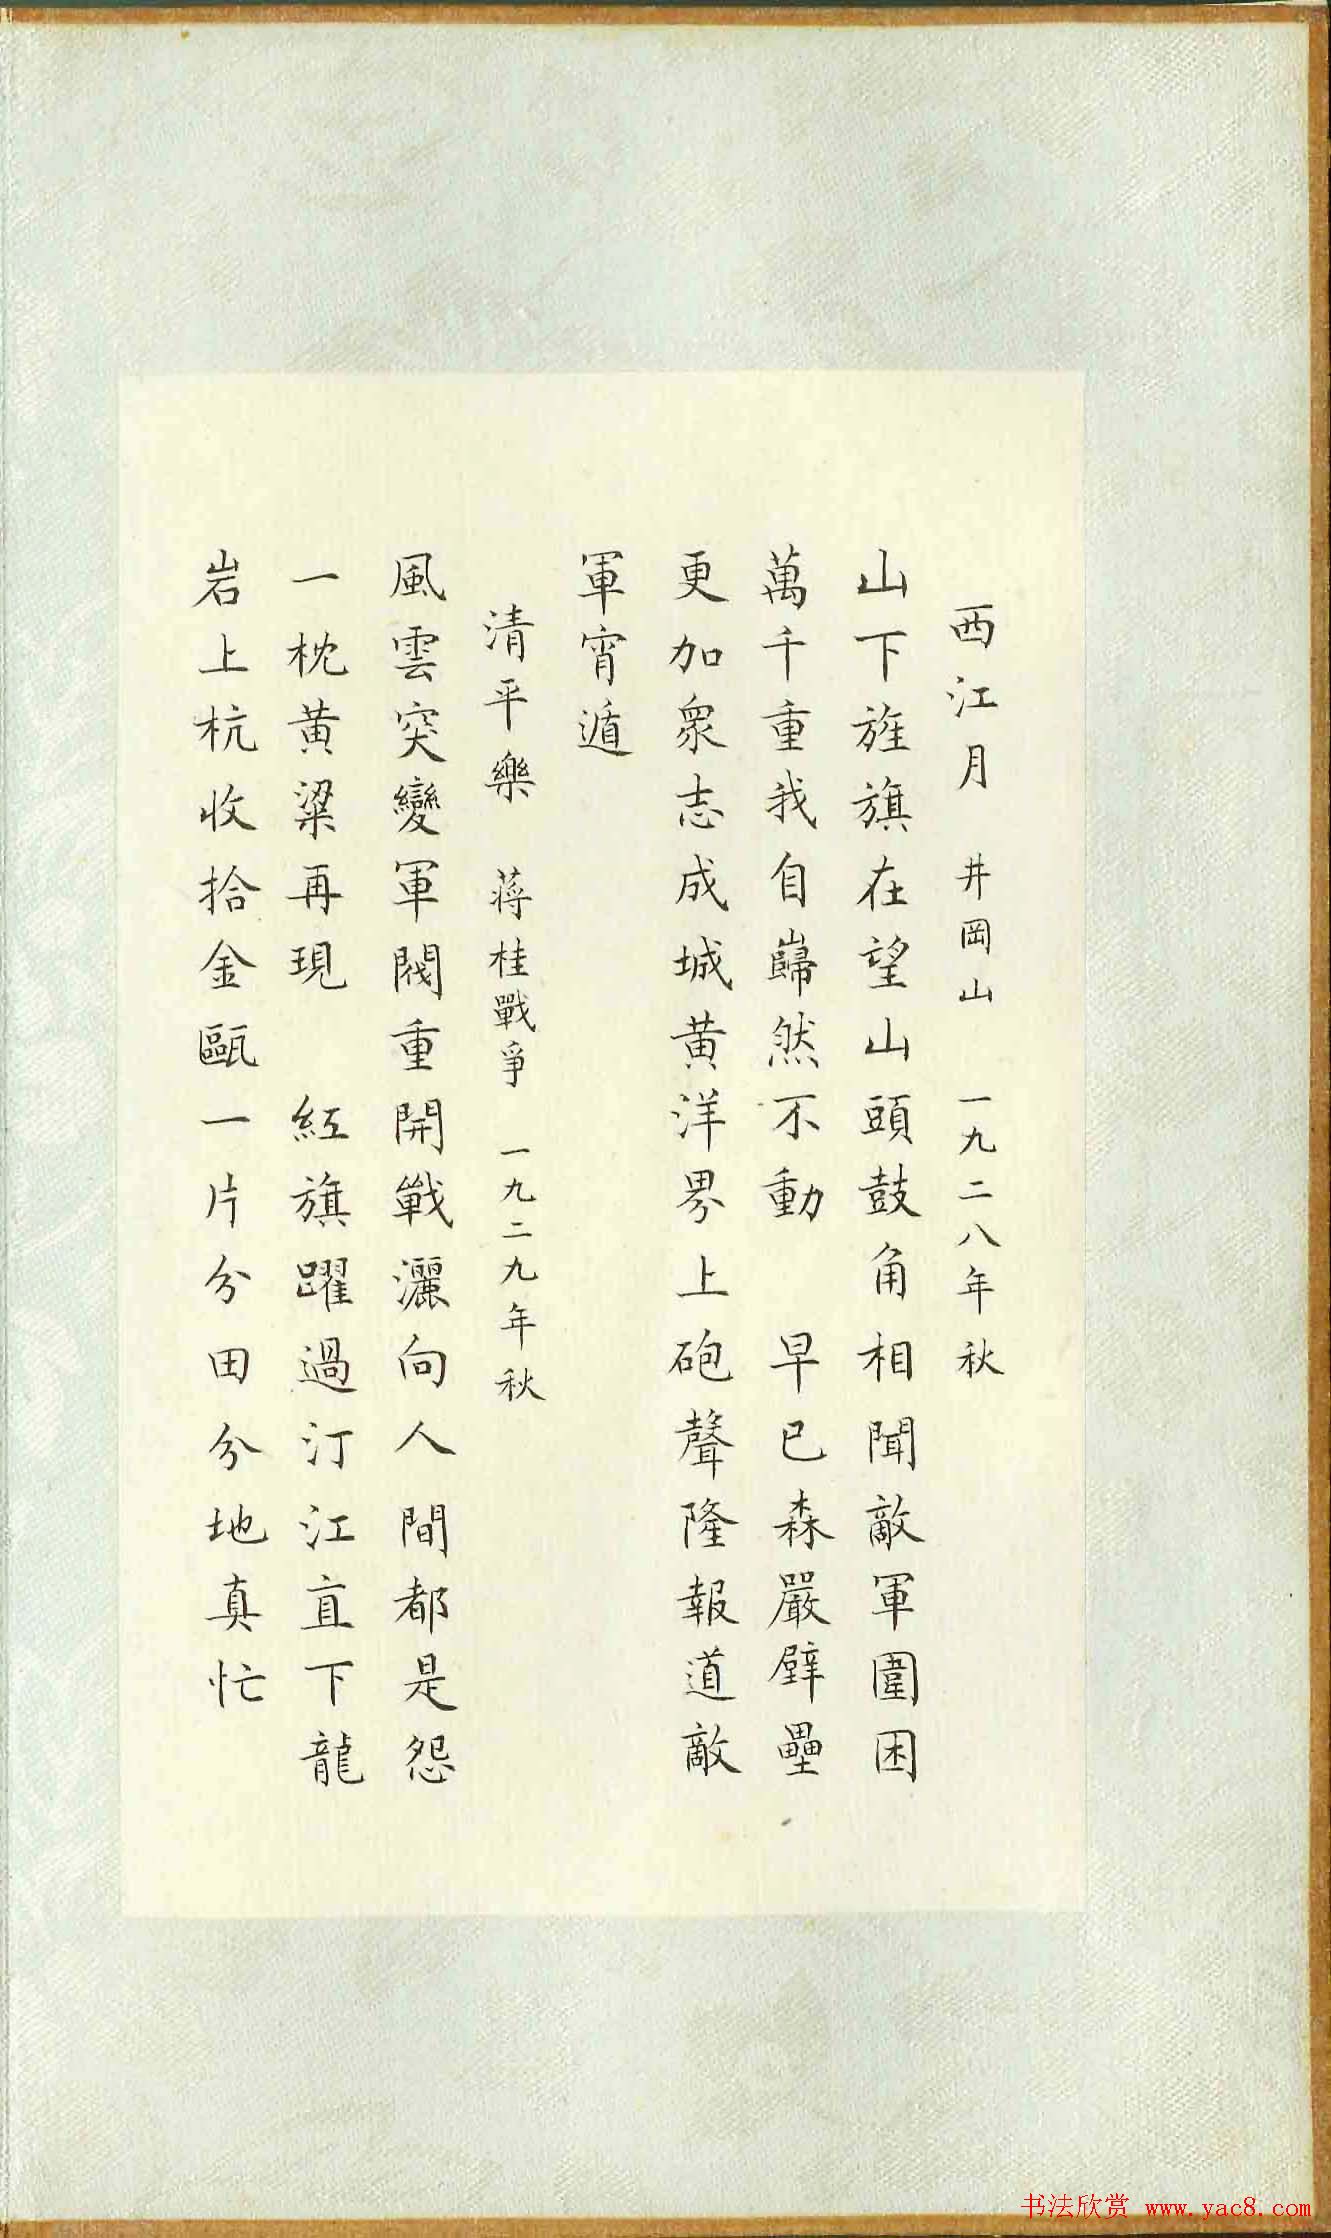 西江月 井岡山 一九二八年秋
山下旌旗在望山頭鼓角相聞敵軍圍困
萬千重我自巋然不動 早已森嚴壁壘
更加衆志成城黄洋界上砲聲隆報道敵
軍宵遁
清平樂 蔣桂戰爭 一九二九年秋
風雲突變軍閥重開戰灑向人間都是怨
一枕黄粱再現 紅旗躍過汀江直下龍
岩上杭收拾金甌一片分田分地真忙
书法欣赏 www.yac8.com